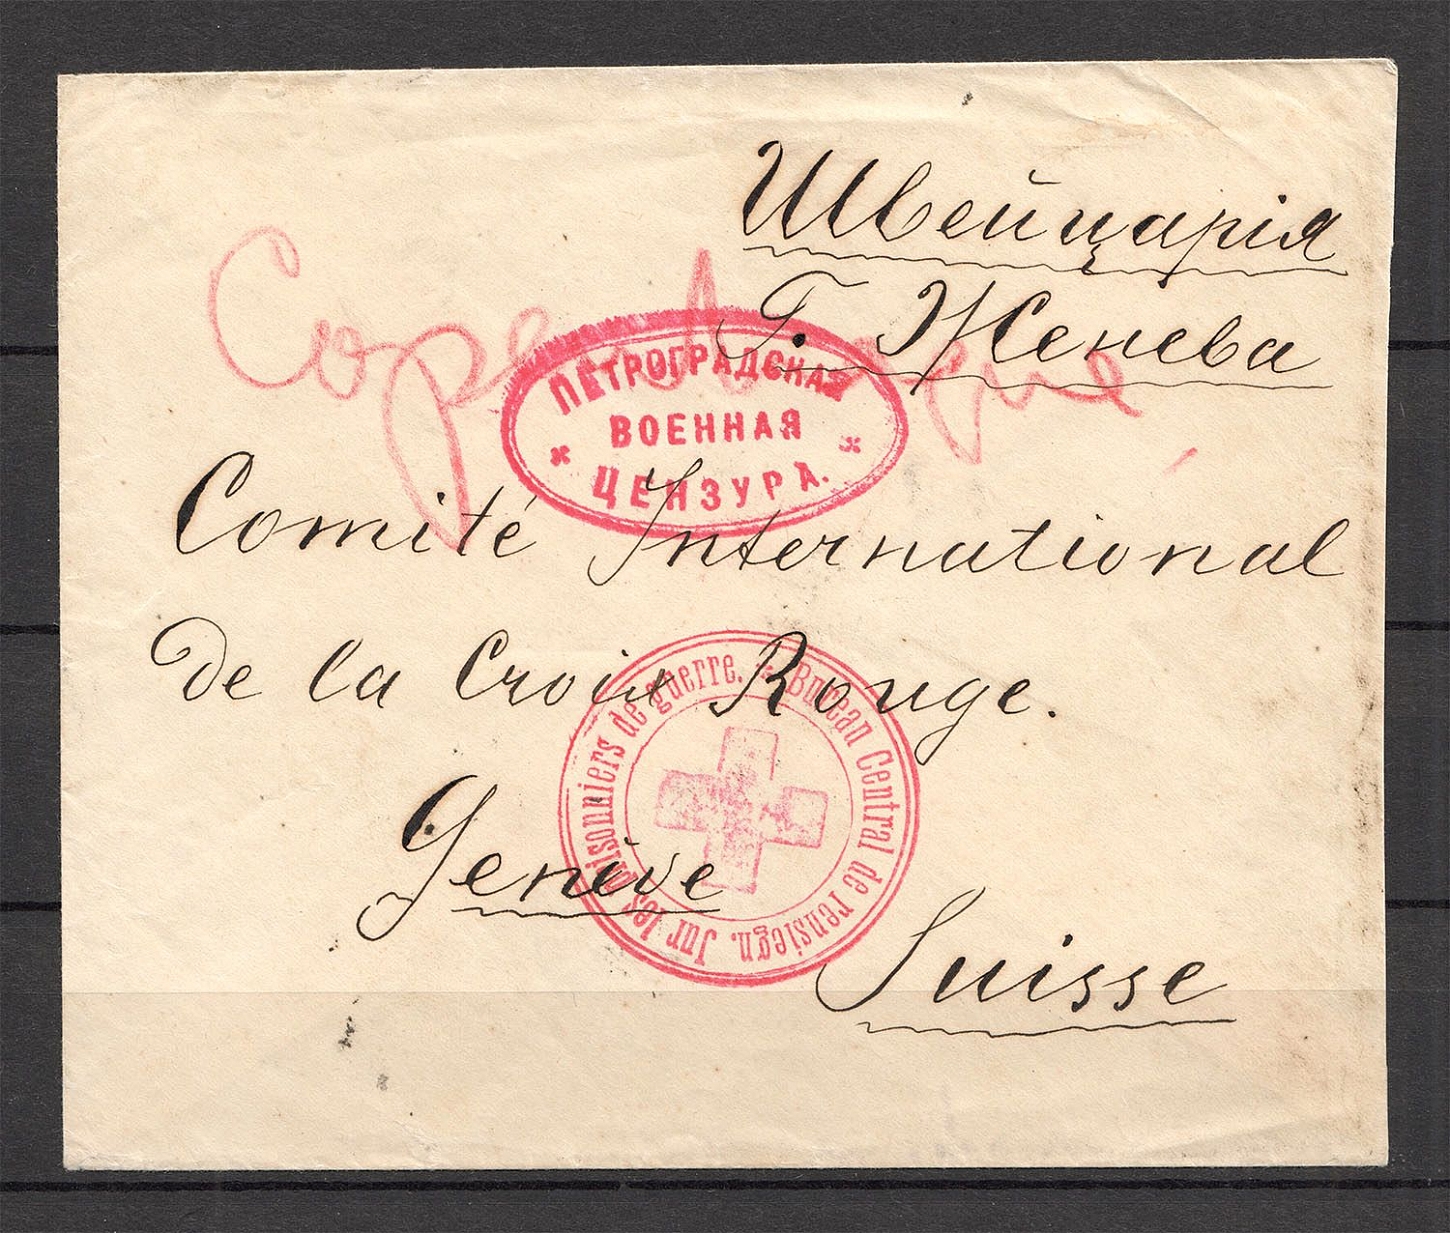 Швейцарія
Г. Женева
Copenhague
ПЕТРОГРАДСКАЯ
ВОЕННАЯ
ЦЕНЗУРА.
Comité International
de la Croix Rouge.
Bureau Central de rensiegn. Jur les prisonniers de guerre.
Genève
Suisse